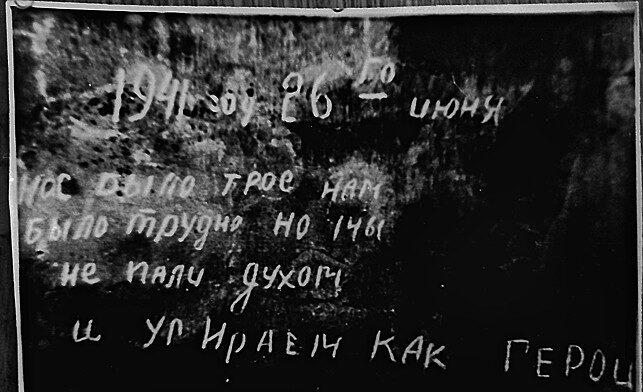 1941 году 26 го июня
нос было трое нам
было трудно но мы
не пали духом
и умираем как герои